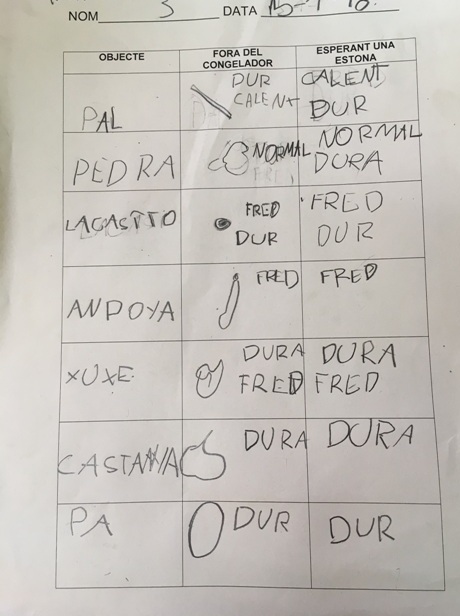 NOM S DATA
OBJECTE FORA DEL CONGELADOR ESPERANT UNA ESTONA
PAL DUR CALENT CALENT DUR
PEDRA NORMAL NORMAL DURA
LAGASTTO FRED DUR FRED DUR
ANDOYA FRED FRED
XUXE DURA FRED DURA FRED
CASTANYA DURA DURA
PA DUR DUR